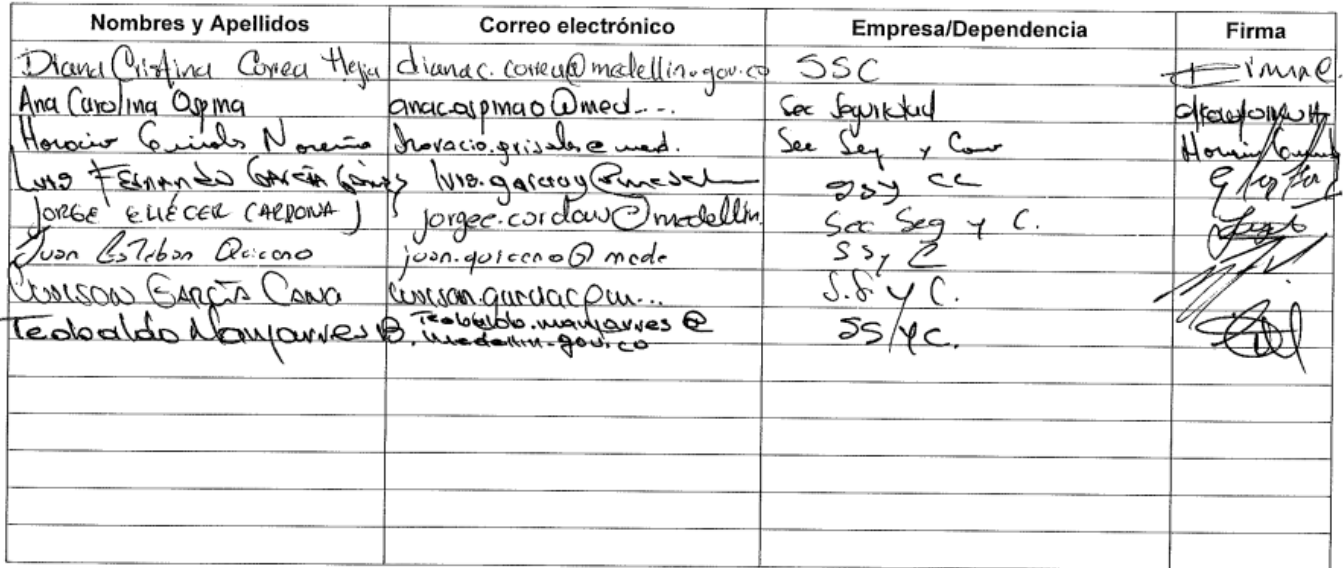 Nombres y Apellidos Correo electrónico Empresa/Dependencia Firma
Diana Cristina Correa Mejia dianac.correa@medellin.gov.co SSC
Ana Carolina Ospina anacospinao@med... Sec Seguridad
Horacio Grisales Noreña horacio.grisales@med. Sec Seg y Con
Luis FERNANDO GARCÍA Gómez luis.garciag@medel SSY CC
JORGE ELIÉCER CARDONA J jorgee.cardona@medellin. Sec Seg y C.
Juan Esteban Quiceno juan.quiceno@mede SSy C
GARCÍA CANO S.S. y C.
Teobaldo Manjarres B. Teobaldo.manjarres@
medellin.gov.co SS/yC.